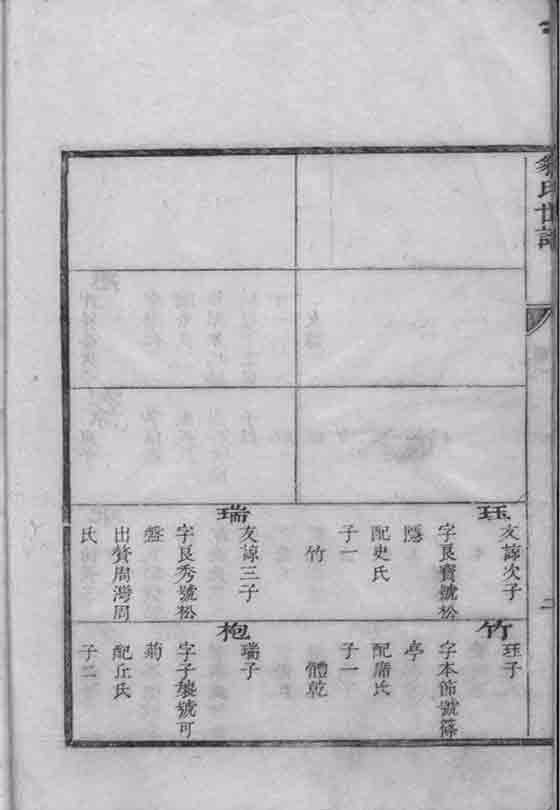 氏世譜
二
珏
友諒次子
字良寶號松
隱
配史氏
子一
竹
瑞
友諒三子
字良秀號松
盤
出贅周灣周
氏
竹
珏子
字本節號篠
亭
配席氏
子一
體乾
枹
瑞子
字子襄號可
菊
配丘氏
子二